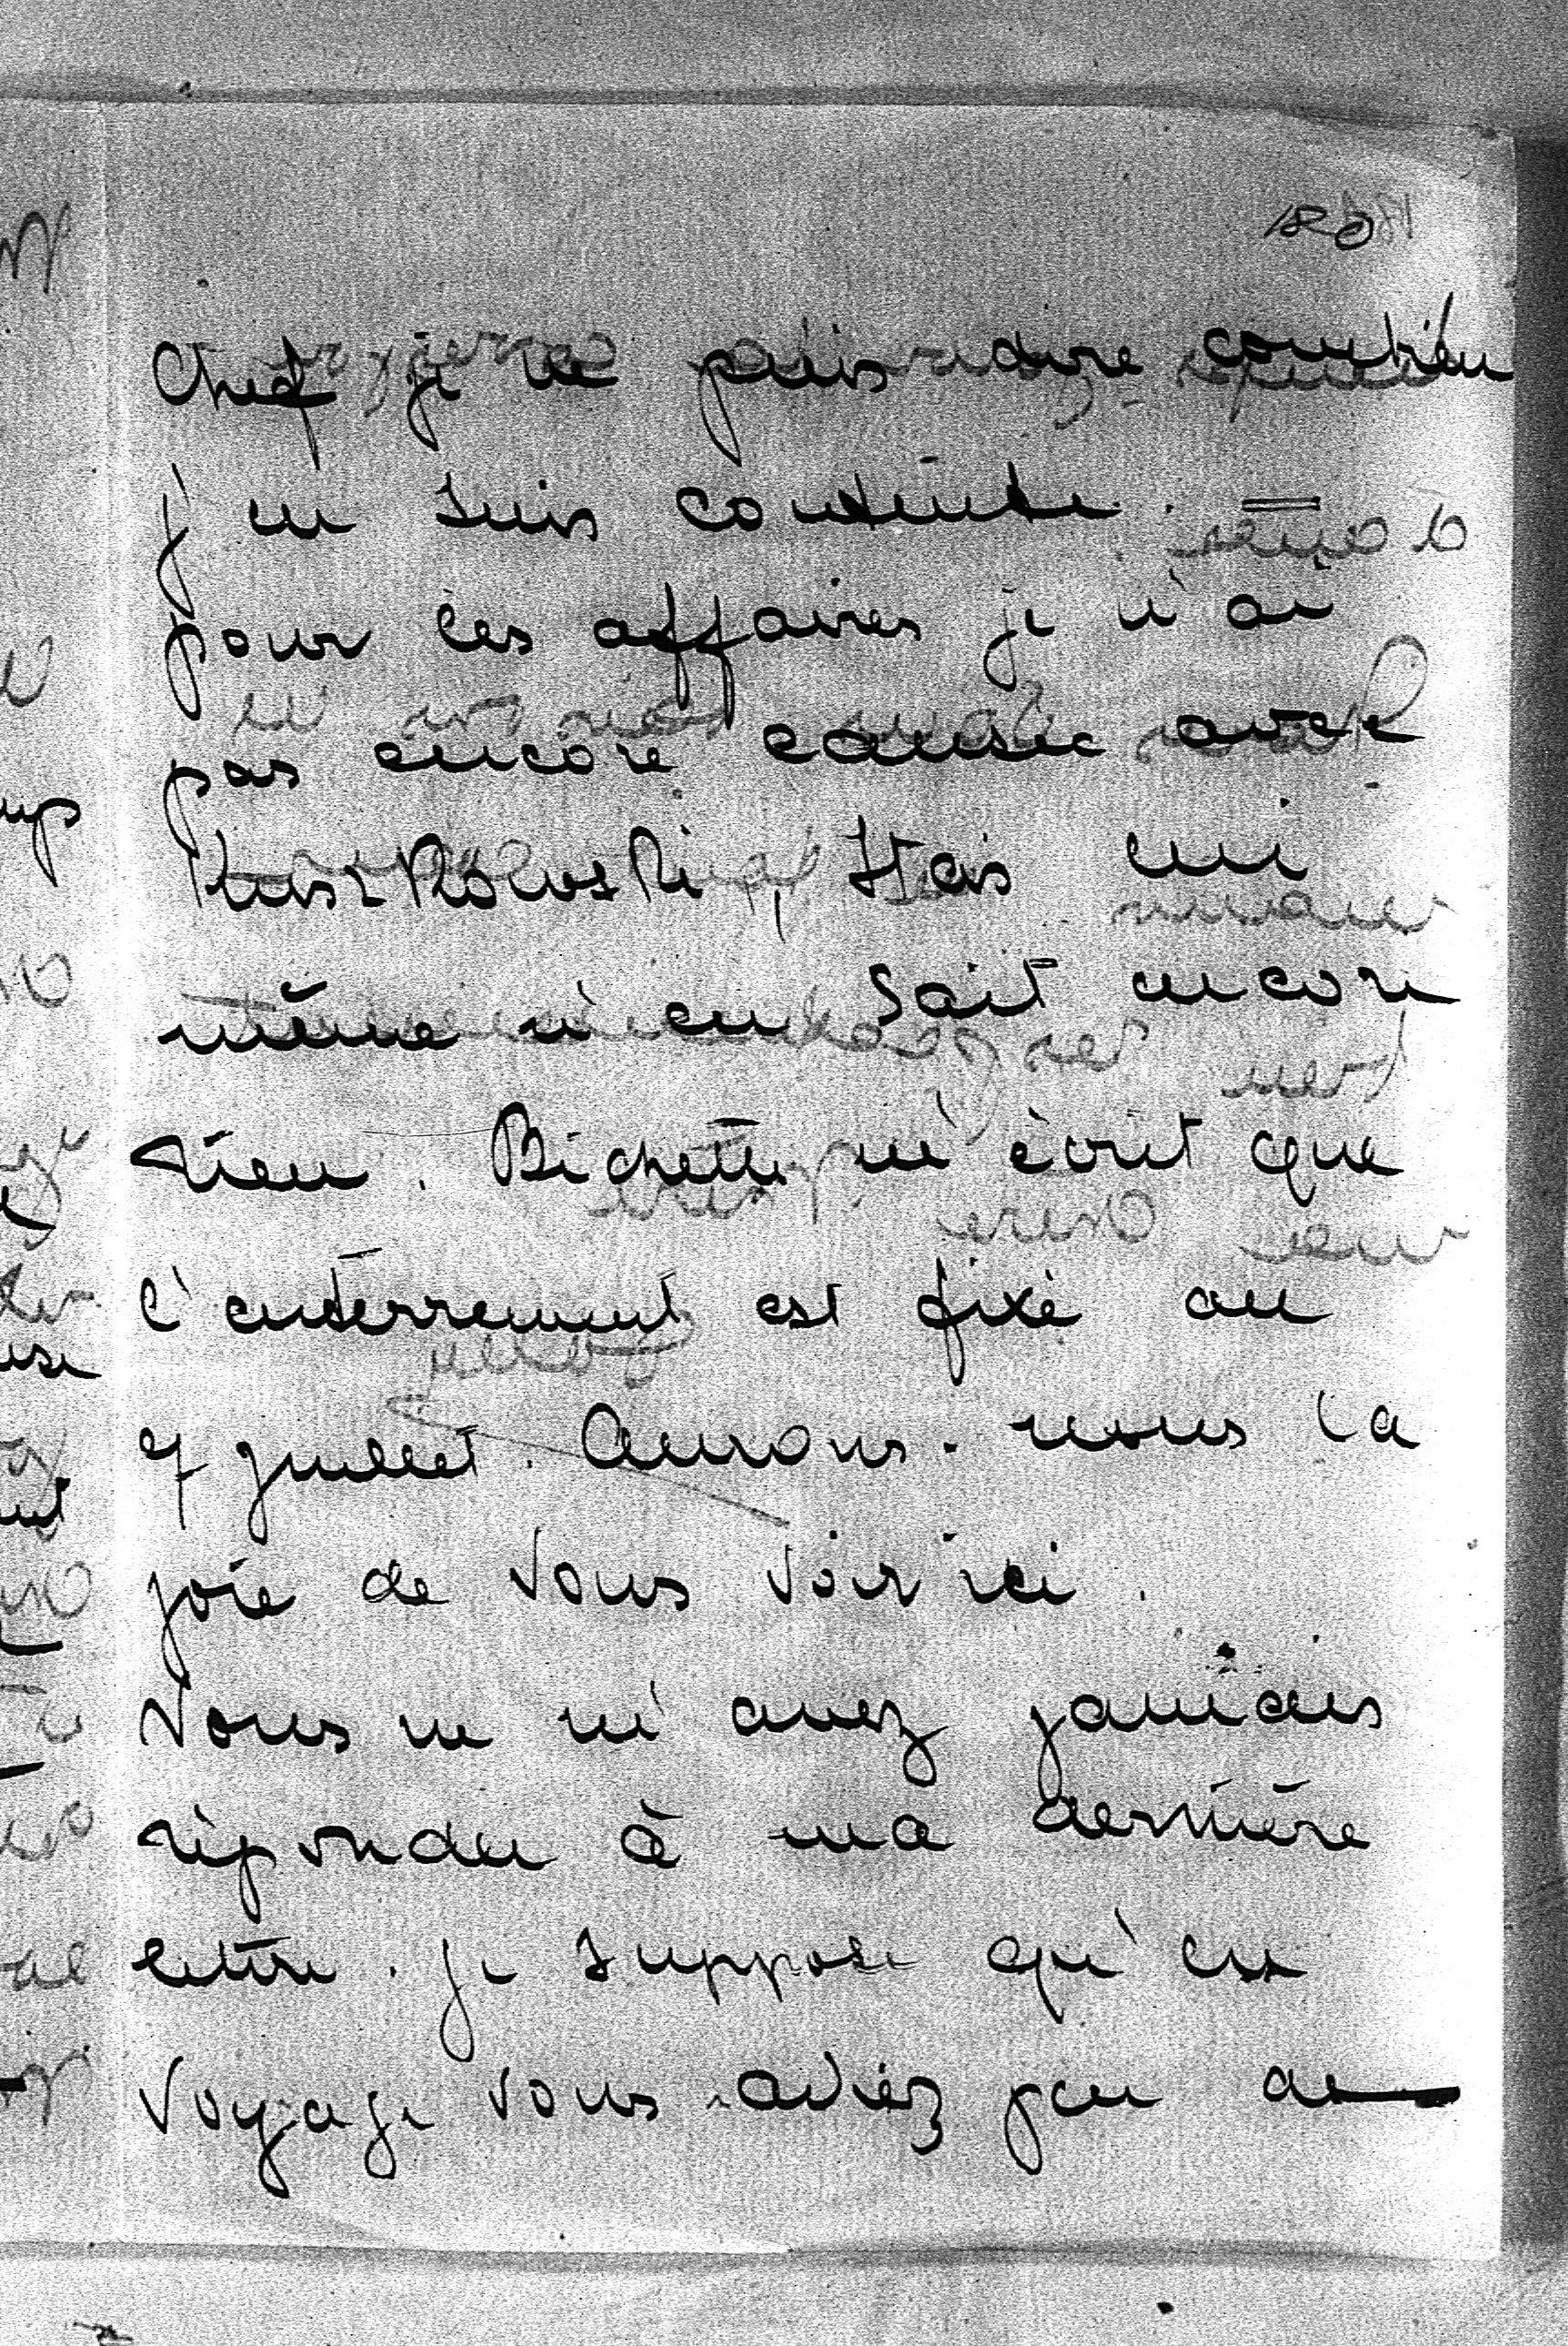 Chef je ne puis dire combien
j'en suis contente.
pour les affaires je n'ai
pas encore causée avec
Kuszkowski, Stas lui
même n'en sait encore
rien. Bichette m'écrit que
l'enterrement est fixé au
7 juillet. Aurons-nous la
joie de vous voir ici.
Vous ne m'avez jamais
répondu à ma dernière
lettre. Je suppose qu'en
voyage vous aviez peu de